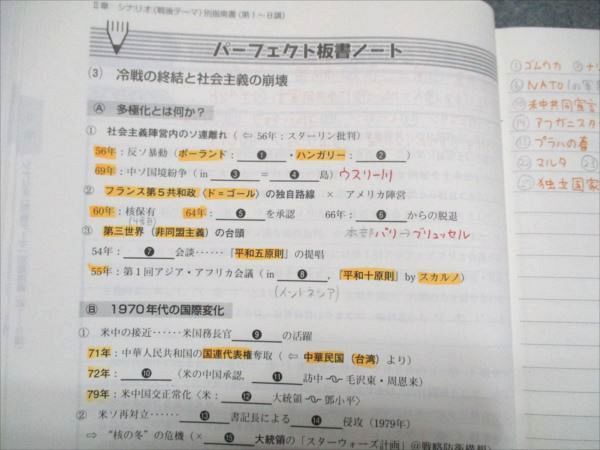 II章 シナリオ〈戦後テーマ〉別指南書(第1～8講)
パーフェクト板書ノート
(3) 冷戦の終結と社会主義の崩壊
Ⓐ 多極化とは何か？
① 社会主義陣営内のソ連離れ(⇐56年：スターリン批判)
56年：反ソ暴動(ポーランド：❶・ハンガリー：❷)
69年：中ソ国境紛争(in ❸＝❹島) ウスリー川
② フランス第5共和政〈ド＝ゴール〉の独自路線 × アメリカ陣営
60年：核保有 64年：❺を承認 66年：❻からの脱退
(4番目) 本部パリ→ブリュッセル
③ 第三世界(非同盟主義)の台頭
54年：❼会談……『平和五原則』の提唱
55年：第1回アジア・アフリカ会議(in ❽，『平和十原則』by スカルノ)
(インドネシア)
Ⓑ 1970年代の国際変化
① 米中の接近……米国務長官❾の活躍
71年：中華人民共和国の国連代表権奪取(⇐中華民国(台湾)より)
72年：❿(米の中国承認，⓫訪中〜毛沢東・周恩来)
79年：米中国交正常化〈米：⓬大統領〜鄧小平〉
② 米ソ再対立……⓭書記長による⓮侵攻(1979年)
⇨ "核の冬"の危機(×⓯大統領の「スターウォーズ計画」@戦略防衛構想)
①ゴムウカ ②ナ
⑥NATOの軍
⑩米中共同宣言
⑭アフガニスタ
プラハの春
マルタ
独立国家